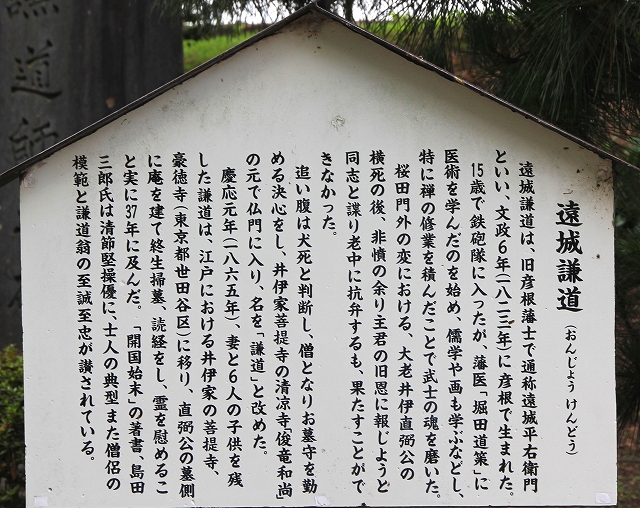 遠城謙道
(おんじょう けんどう)
遠城謙道は、旧彦根藩士で通称遠城平右衛門
といい、文政6年(一八二三年)に彦根で生まれた。
15歳で鉄砲隊に入ったが、藩医「堀田道策」に
医術を学んだのを始め、儒学や画も学ぶなどし、
特に禅の修業を積んだことで武士の魂を磨いた。
桜田門外の変における、大老井伊直弼公の
横死の後、非憤の余り主君の旧恩に報じようと
同志と諜り老中に抗弁するも、果たすことがで
きなかった。
追い腹は犬死と判断し、僧となりお墓守を勤
める決心をし、井伊家菩提寺の清凉寺「俊竜和尚」
の元で仏門に入り、名を「謙道」と改めた。
慶応元年(一八六五年)、妻と6人の子供を残
した謙道は、江戸における井伊家の菩提寺、
豪徳寺(東京都世田谷区)に移り、直弼公の墓側
に庵を建て終生掃墓、読経をし、霊を慰めるこ
と実に37年に及んだ。「開国始末」の著書、島田
三郎氏は清節堅操優に、士人の典型また僧侶の
模範と謙道翁の至誠至忠が讃されている。
道師